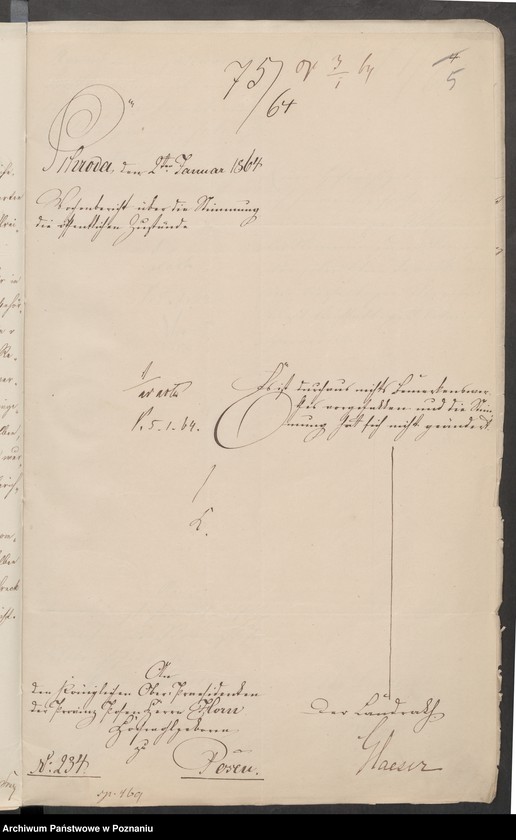 75/64 3/1 64
5
Schroda, den 2ten Januar 1864
Wochenbericht über die Stimmung
die öffentlichen Zustände
Es ist durchaus nichts Bemerkenswer-
thes vorgefallen und die Stim-
mung hat sich nicht geändert
ad acta
P. 5.1.64.
An
den Königlichen Ober-Praesidenten
der Provinz Posen Herrn Horn
Hochwohlgeboren
zu
Posen.
Der Landrath
Glaeser
N: 234.
Archiwum Państwowe w Poznaniu